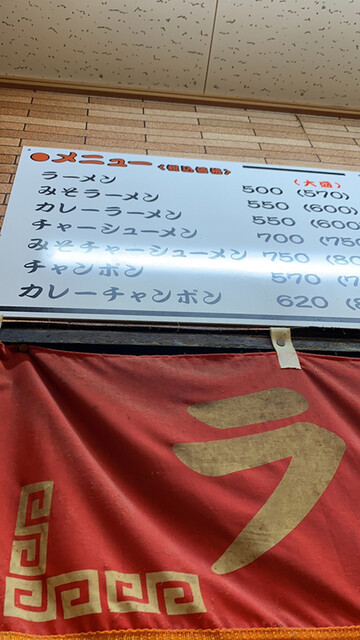 ●メニュー（税込価格）
（大盛）
ラーメン 500（570）
みそラーメン 550（600）
カレーラーメン 550（600
チャーシューメン 700（750
みそチャーシューメン 750（80
チャンポン 570（7
カレーチャンポン 620（
ラ